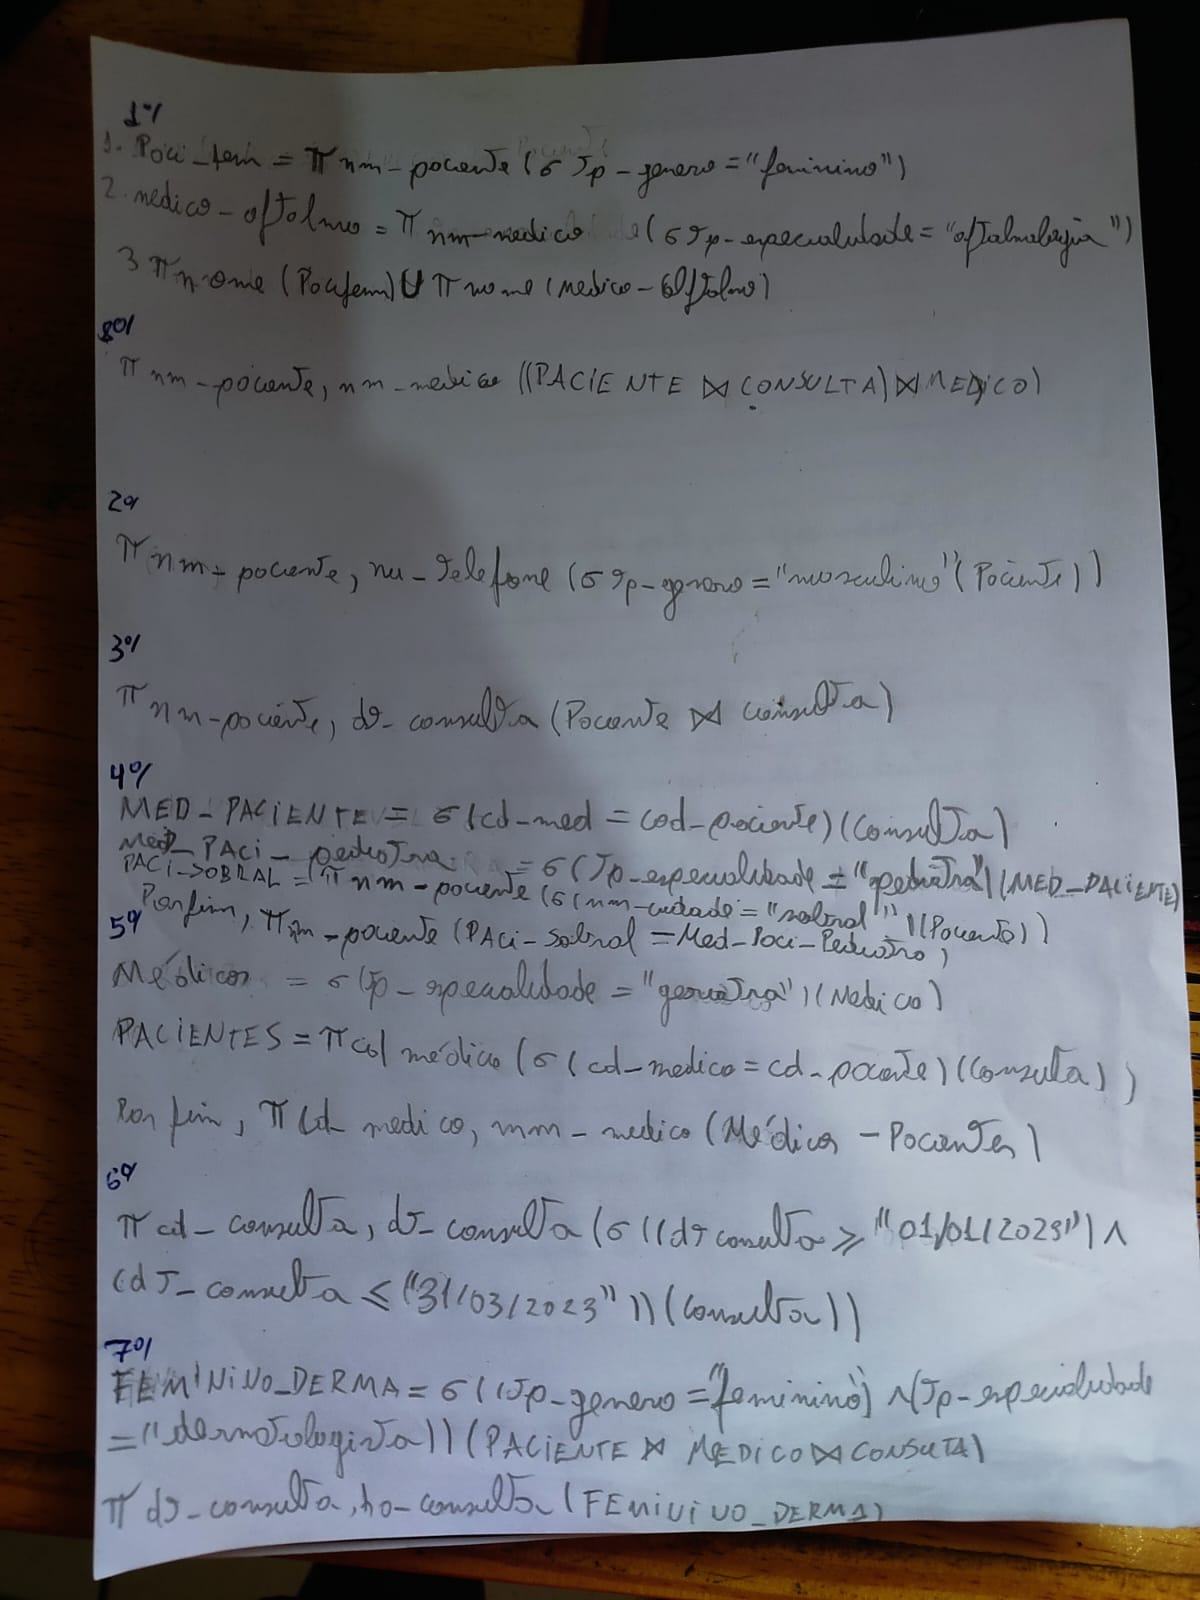 1ª
1. Paci_fem = π nm-paciente (σ Tp-genero = "feminino")
2. medico-oftalmo = π nm-medico (σ Tp-especialidade = "oftalmologia")
3 π nome (Pacifem) U π nome (medico-oftalmo)
8ª
π nm-paciente, nm-medico ((PACIENTE ⋈ CONSULTA) ⋈ MEDICO)
2ª
π nm-paciente, nu-telefone (σ Tp-genero = "masculino" (Paciente))
3ª
π nm-paciente, dt-consulta (Paciente ⋈ consulta)
4ª
MED_PACIENTE = σ (cd-med = cod-paciente) (Consulta)
Med_PACi_pediatra = σ (Tp-especialidade = "pediatra") (MED_PACIENTE)
PACI-SOBRAL = π nm-paciente (σ (nm-cidade = "sobral") (Paciente))
Por fim, π nm-paciente (PACi-Sobral = Med-Paci-Pediatra)
5ª
Médicos = σ (Tp-especialidade = "geriatra") (Medico)
PACIENTES = π cd médico (σ (cd-medico = cd-paciente) (Consulta))
Por fim, π Cd-medico, nm-medico (Médicos - Pacientes)
6ª
π cd-consulta, dt-consulta (σ ((dt consulta ⩾ "01/01/2023") ∧
(dt-consulta ⩽ "31/03/2023")) (Consulta))
7ª
FEMININO_DERMA = σ ((Tp-genero = "feminino) ∧ (Tp-especialidade
= "dermatologista)) (PACIENTE ⋈ MEDICO ⋈ CONSULTA)
π dt-consulta, ho-consulta (FEMININO_DERMA)